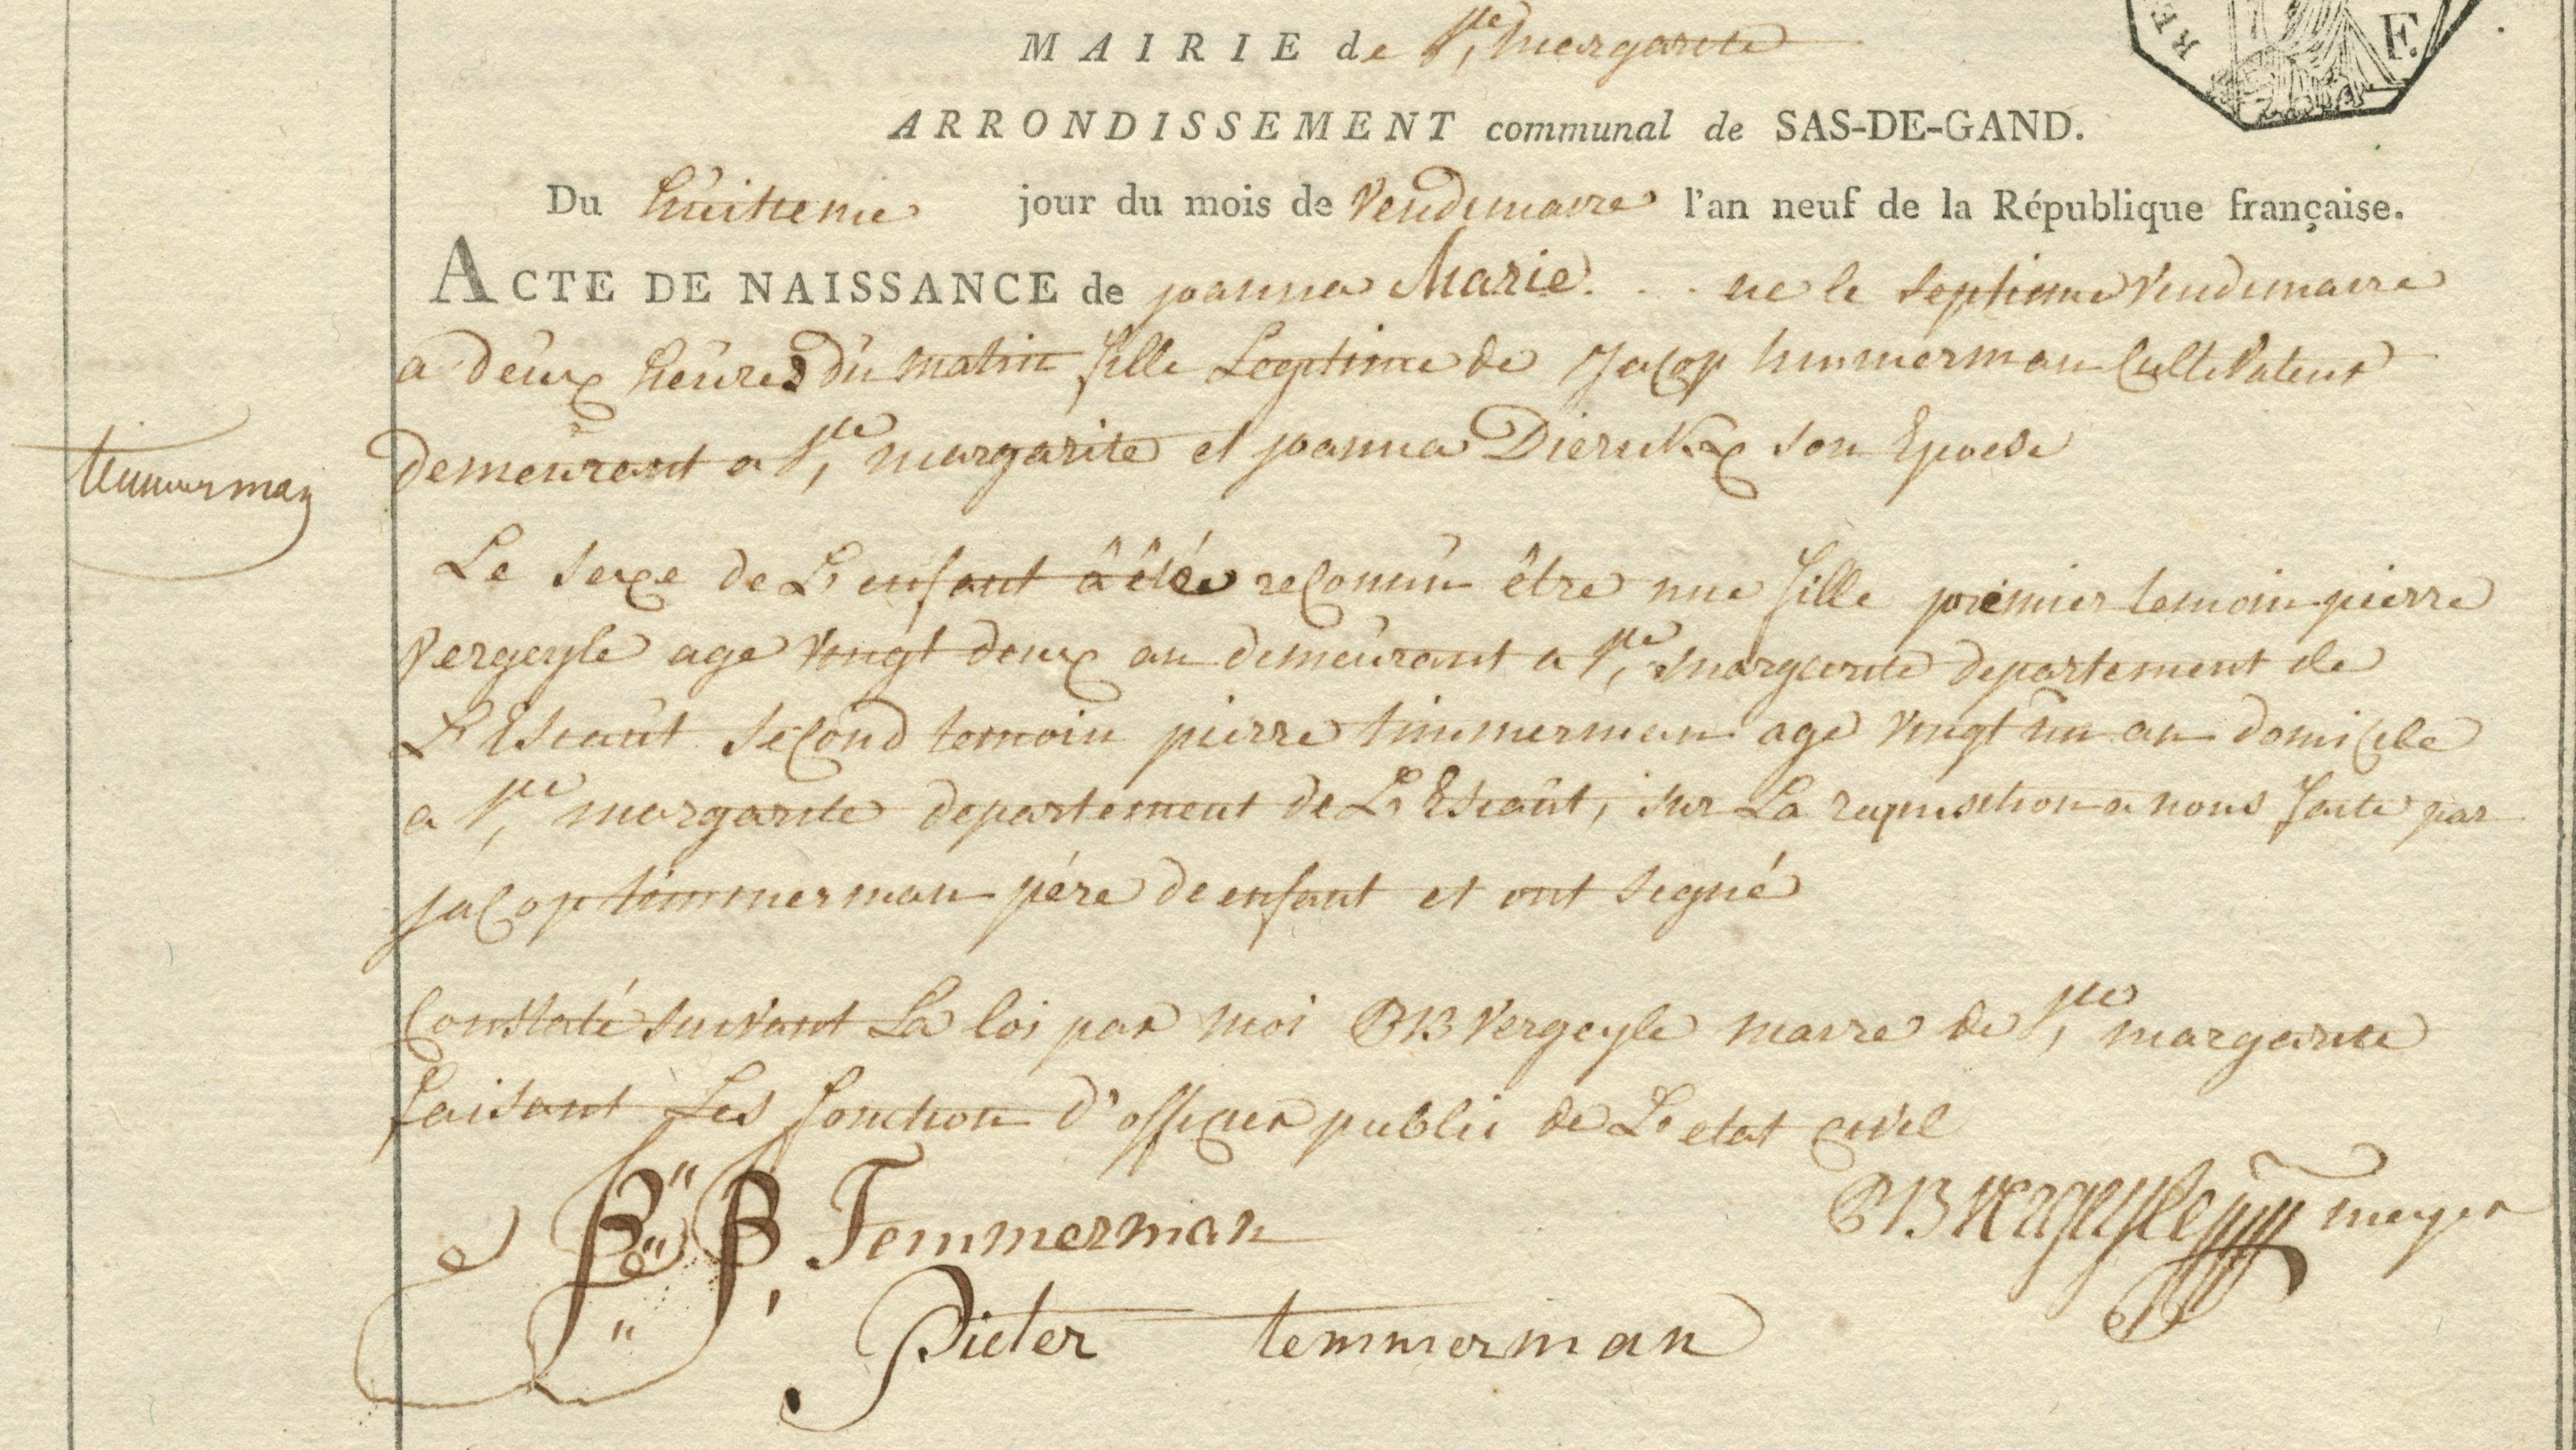 MAIRIE de Ste margarite
RE
F.
ARRONDISSEMENT communal de SAS-DE-GAND.
Du huitieme jour du mois de Vendemaire l'an neuf de la République française.
ACTE DE NAISSANCE de joanna Marie . . . né le septieme Vendemaire
a deux heures du matin fille Legitime de Jacop timmerman Cultivateur
demeurant a Ste margarite et joanna Dierickx son Epouse
timmerman
Le sexe de L'enfant â êtée reconnu être une fille premier temoin pierre
Vergeyle age vingt deux an demeurant a Ste margarite departement de
L'Escaut second temoin pierre timmerman age vingt un an domicile
a Ste margarite departement de L'Escaut, sur La requisition a nous faite par
jacop timmerman pére de enfant et ont signé
Constaté suivant La loi par moi PB Vergeyle maire de Ste margarite
faisant Les fonction d'officier public de L'etat civil
Temmerman
PB Vergeyle meyer
Pieter temmerman